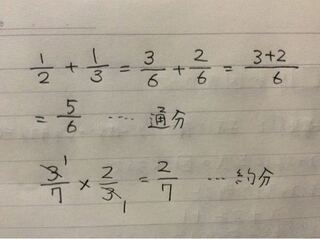 1/2 + 1/3 = 3/6 + 2/6 = 3+2/6
= 5/6 ···· 通分
3̸¹/7 × 2/3̸₁ = 2/7 ··· 約分